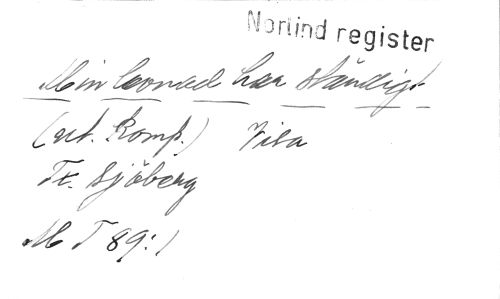 Norlind register
Min levnad har ständigt
(ut. Komp.) Visa
Tr. Sjöberg
M T 89:1